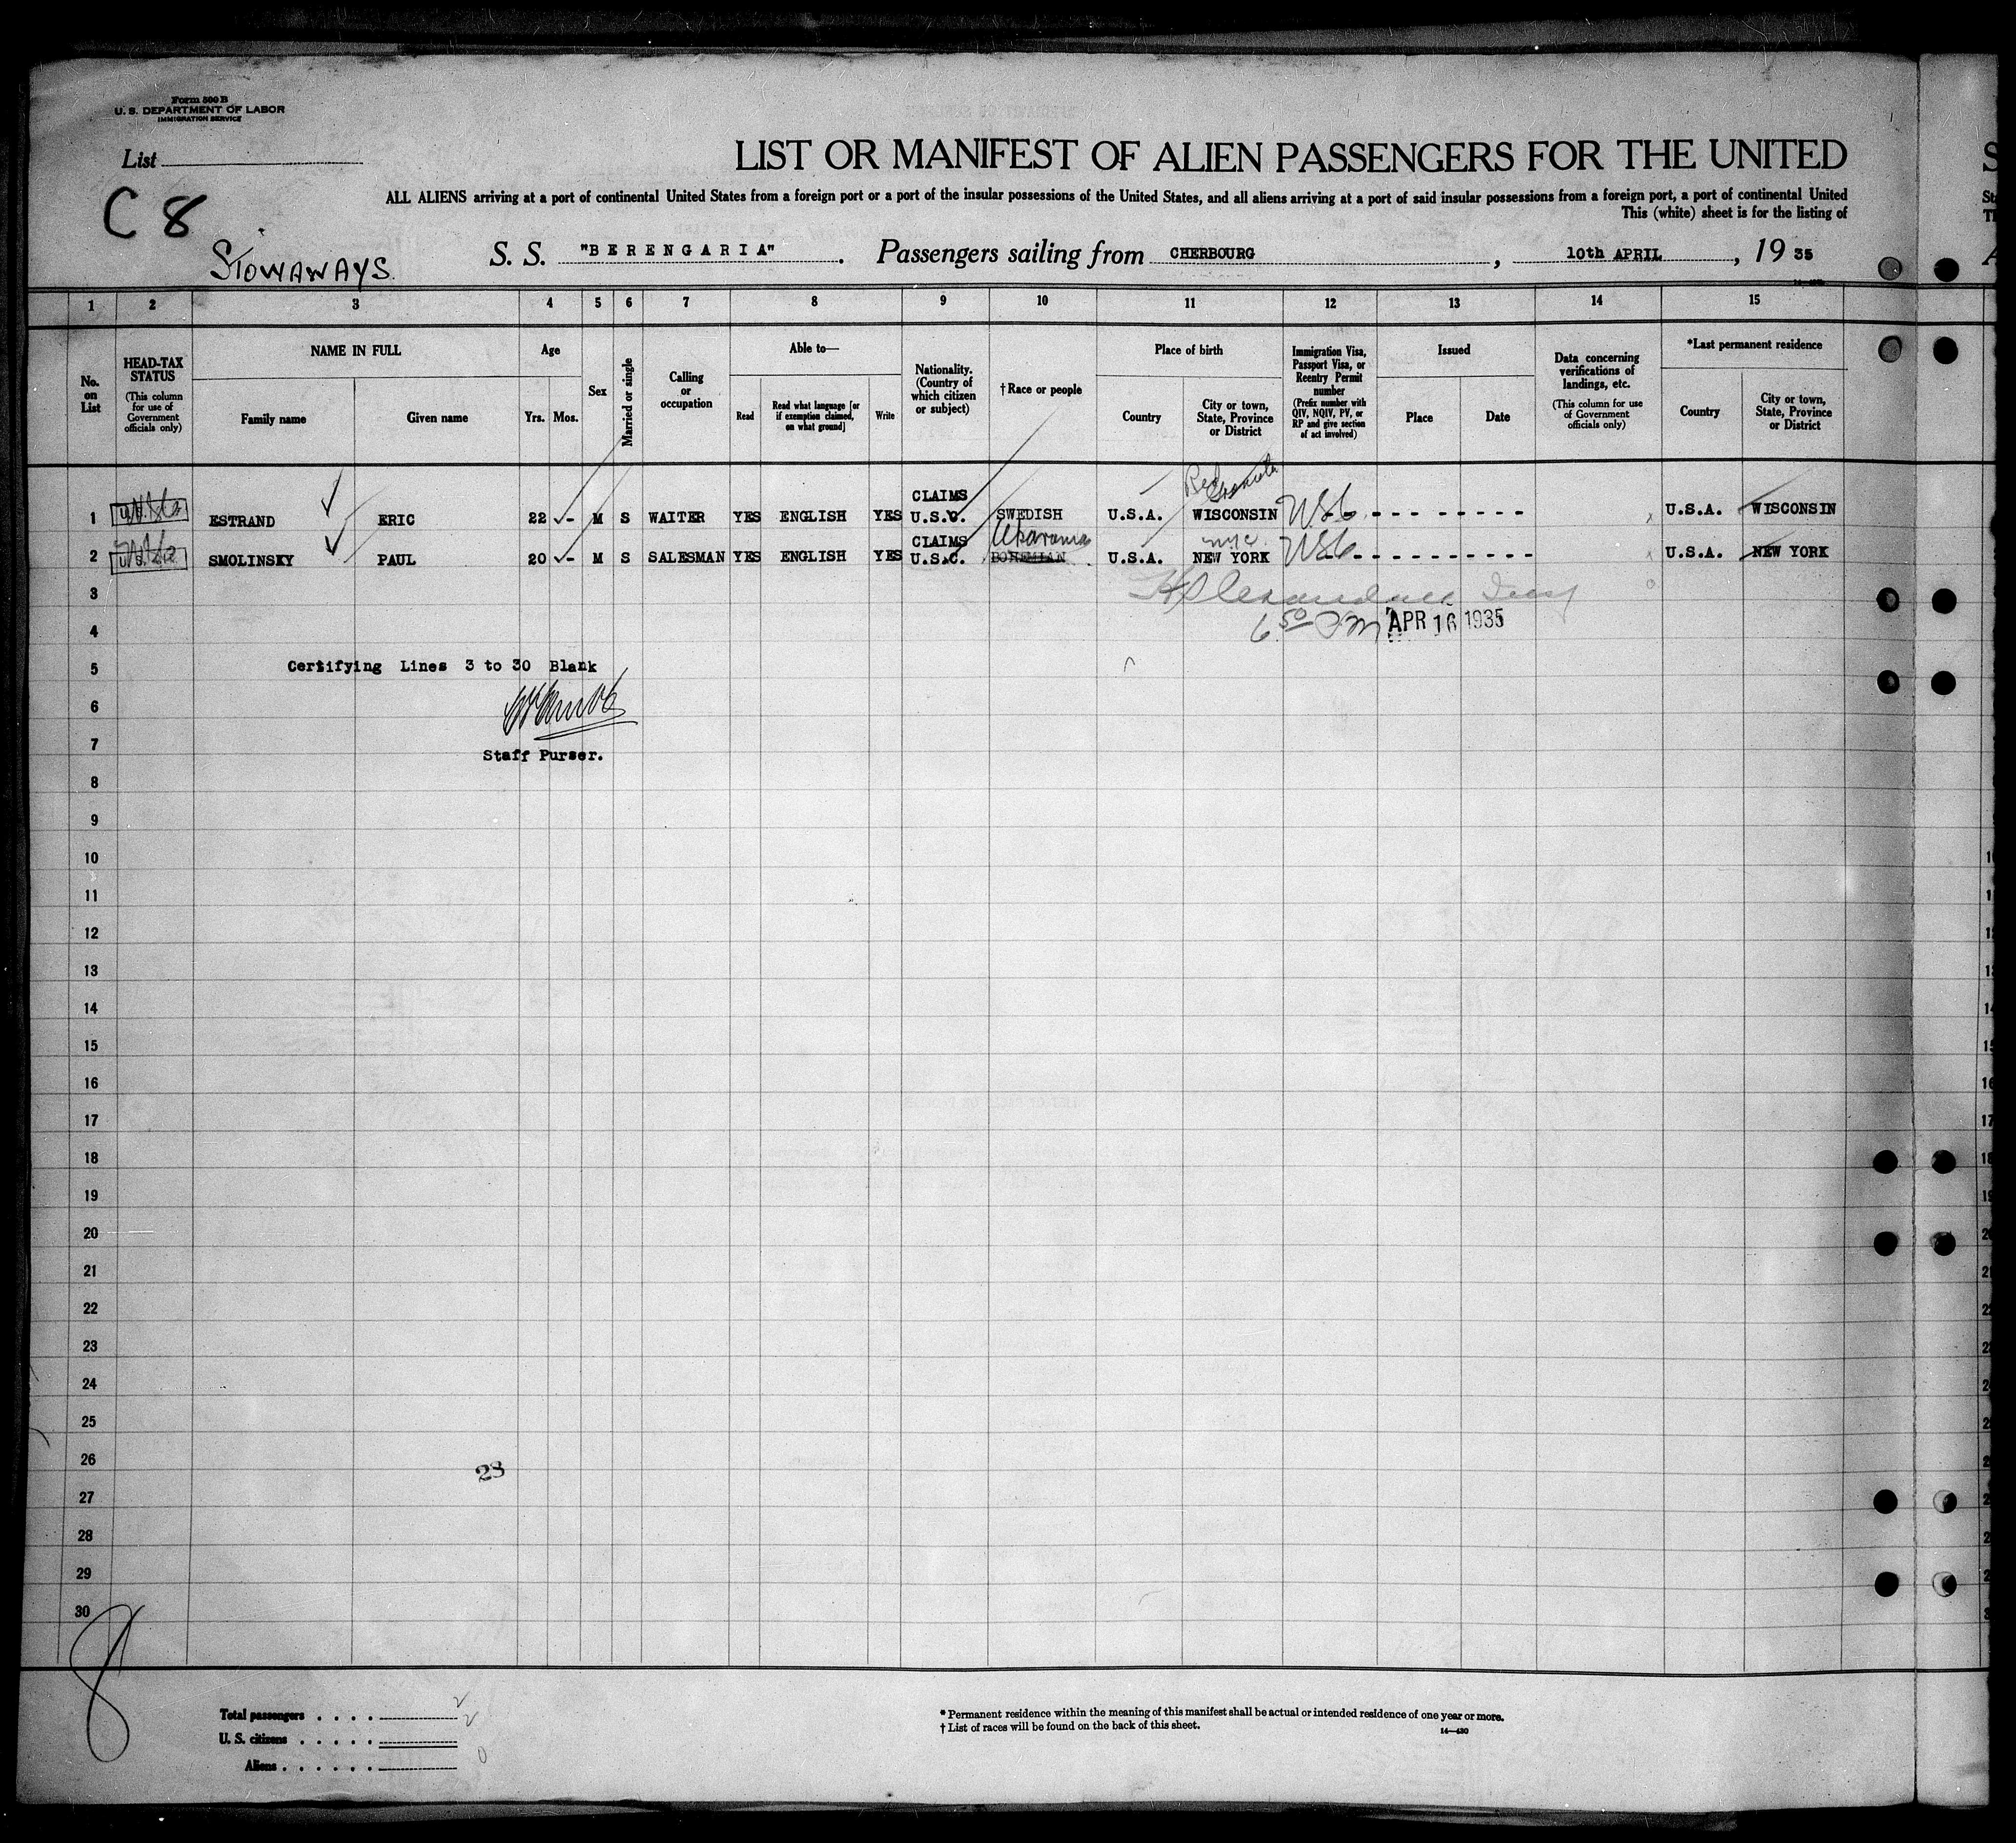 Form 500 B
U. S. DEPARTMENT OF LABOR
IMMIGRATION SERVICE
List
C 8
STOWAWAYS
LIST OR MANIFEST OF ALIEN PASSENGERS FOR THE UNITED
ALL ALIENS arriving at a port of continental United States from a foreign port or a port of the insular possessions of the United States, and all aliens arriving at a port of said insular possessions from a foreign port, a port of continental United
This (white) sheet is for the listing of
S. S. "BERENGARIA". Passengers sailing from CHERBOURG, 10th APRIL, 19 35
1 2 3 4 5 6 7 8 9 10 11 12 13 14 15
No. on List
HEAD-TAX STATUS
(This column for use of Government officials only)
NAME IN FULL
Family name
Given name
Age
Yrs. Mos.
Sex
Married or single
Calling or occupation
Able to—
Read
Read what language [or if exemption claimed, on what ground]
Write
Nationality. (Country of which citizen or subject)
† Race or people
Place of birth
Country
City or town, State, Province or District
Immigration Visa, Passport Visa, or Reentry Permit number
(Prefix number with QIV, NQIV, PV, or RP and give section of act involved)
Issued
Place
Date
Data concerning verifications of landings, etc.
(This column for use of Government officials only)
*Last permanent residence
Country
City or town, State, Province or District
1 ESTRAND ERIC 22 - M S WAITER YES ENGLISH YES CLAIMS U.S.C. SWEDISH U.S.A. WISCONSIN - - - - - - - - - U.S.A. WISCONSIN
2 SMOLINSKY PAUL 20 - M S SALESMAN YES ENGLISH YES CLAIMS U.S.C. BOHEMIAN U.S.A. NYC NEW YORK - - - - - - - - - - - U.S.A. NEW YORK
3
4 6 50 PM APR 16 1935
5 Certifying Lines 3 to 30 Blank
6
7 Staff Purser.
8
9
10
11
12
13
14
15
16
17
18
19
20
21
22
23
24
25
26
28
27
28
29
30
8
Total passengers . . . . 2
U. S. citizens . . . . . 2
Aliens . . . . . . 0
* Permanent residence within the meaning of this manifest shall be actual or intended residence of one year or more.
† List of races will be found on the back of this sheet.
14—430